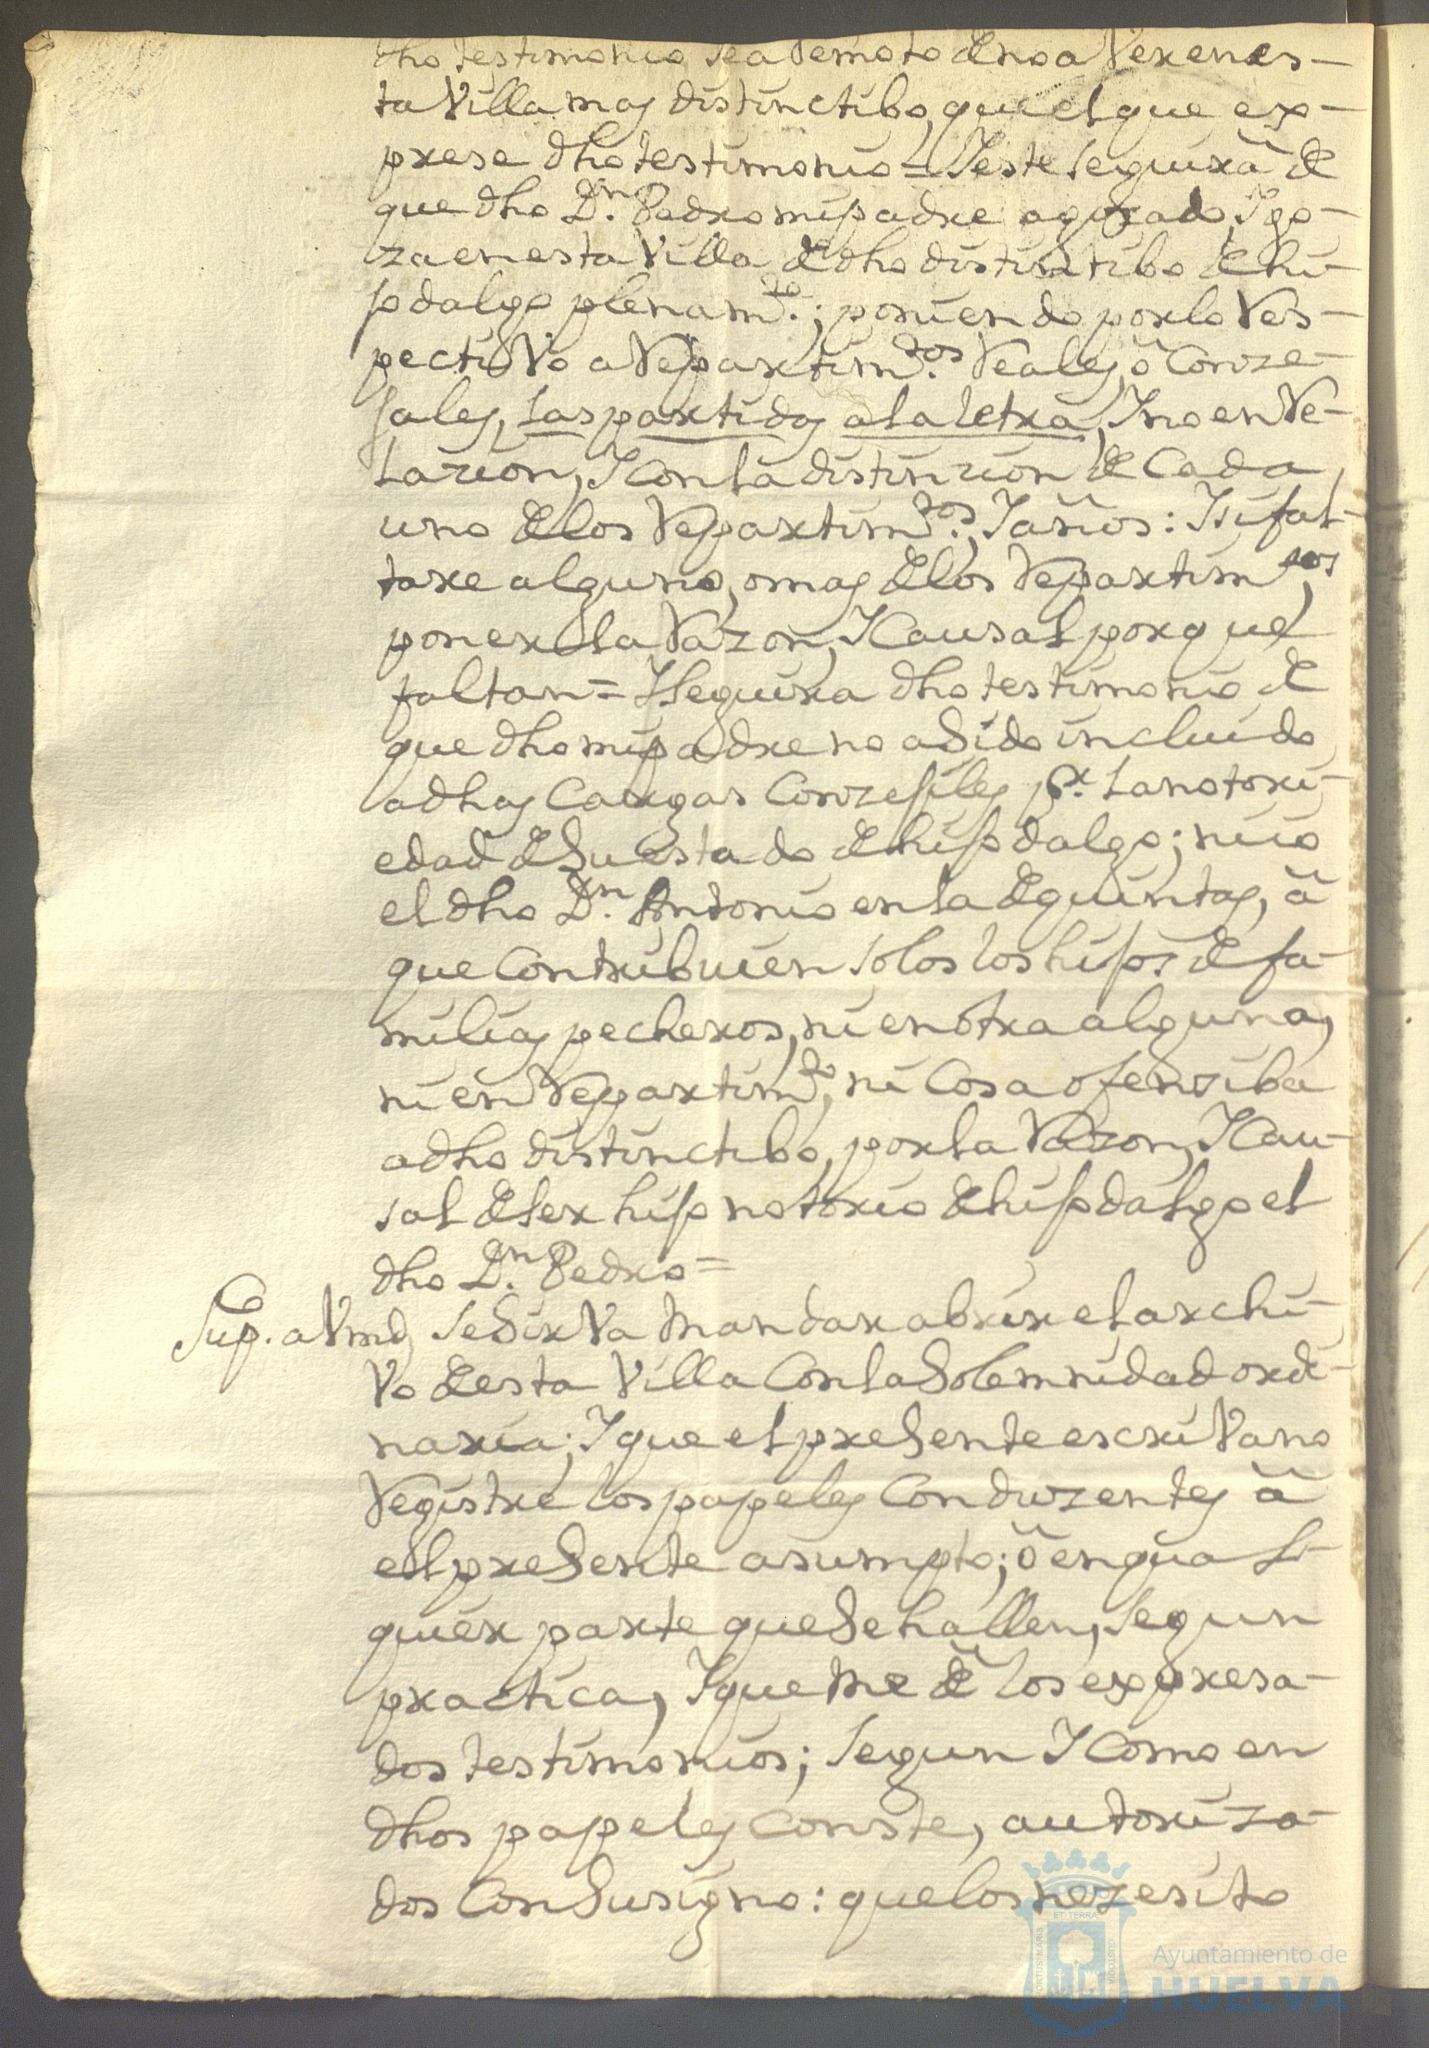 dho testimonio sea remoto de no aver en es-
ta Villa mas distinctibo, que el que ex-
prese dho testimonio = I este seguirà de
que dho Dn. Pedro mi padre a gozado, I go-
za en esta Villa de dho distintibo de hi-
jodalgo plenamte.; poniendo por lo res-
pectivo a repartimtos. reales, ò conze-
jales, las partidas a la letra, I no en re-
lazion, I con la distinzion de cada
uno de los repartimtos., I años: I si fal-
tare alguno, o mas de los repartimtos,
poner la razon, I causal porque
faltan = I seguira dho testimonio de
que dho mi padre no a sido incluido
a dhas cargas conzejiles pr. la notori-
edad de su estado de hijodalgo; ni io
el dho Dn. Antonio en la de quintas, à
que contribuien solos los hijos de fa-
milias pecheros, ni en otra alguna,
ni en repartimto, ni cosa ofenziba
a dho distinctibo, por la razon, I cau-
sal de ser hijo notorio de hijodalgo el
dho Dn. Pedro =
Supco. a Vmd se sirva mandar abrir el archi-
vo de esta Villa con la solemnidad ordi-
naria; I que el presente escrivano
registre los papeles conduzentes à
el presente asumpto; ò en qual-
quier parte que se hallen, segun
practica, I que me dè los expresa-
dos testimonios; segun I como en
dhos papeles conste, autoriza-
dos con su signo: que los nezesito
Ayuntamiento de
HUELVA